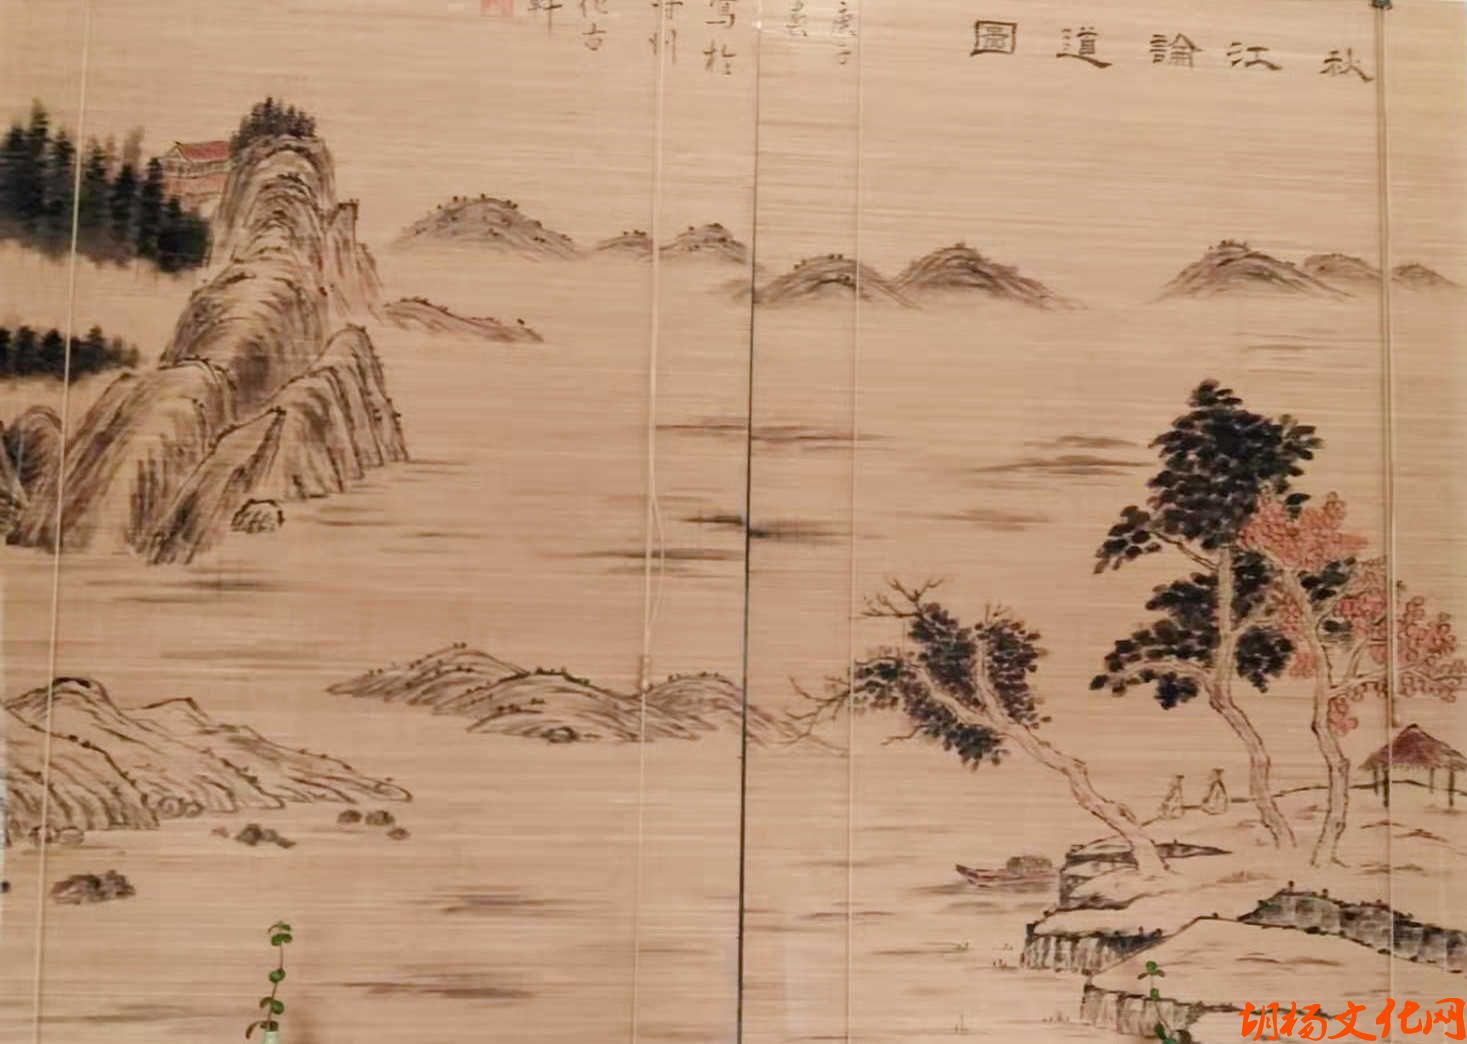 秋江論道圖
庚子
寫於
州
古
軒
胡杨文化网